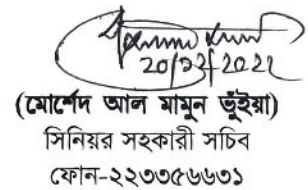 20/12/2022
(মোর্শেদ আল মামুন ভুঁইয়া)
সিনিয়র সহকারী সচিব
ফোন-২২৩৩৫৬৬৩১